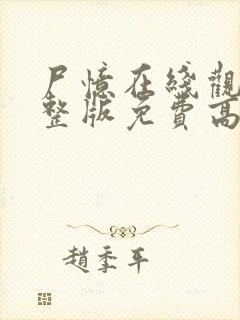 尸憶在綫觀
整版免費高
趙季平